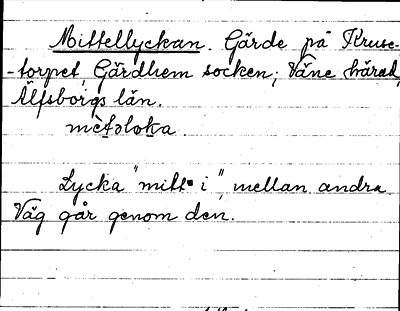 Mittellyckan. Gärde på Kruse-
-torpet, Gärdhem socken; Väne härad,
Älfsborgs län.
mètəloka.
Lycka "mitt i", mellan andra.
Väg går genom den.